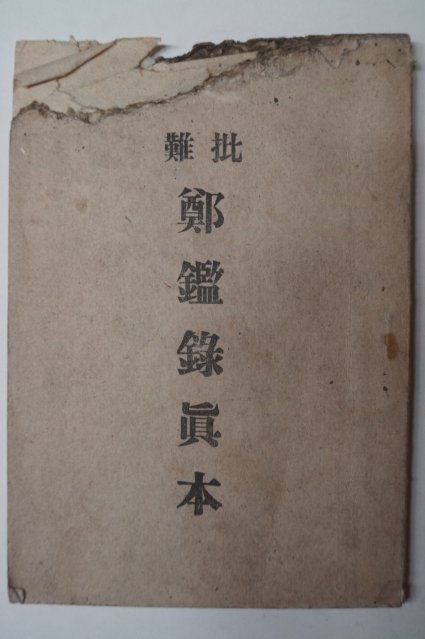 批難
鄭鑑錄眞本